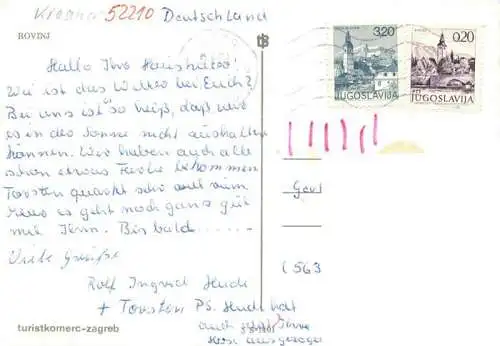 52210 Deutschland
ROVINJ
Hallo Ihr
Wie ist das Wetter bei Euch?
Bei uns ist so heiß, daß wir
es in der Sonne nicht aushalten
können. Wir haben auch alle
schon etwas Farbe bekommen
Torsten quackt sehr viel rum
Aber es geht noch ganz gut
mit Ihm. Bis bald......
Viele Grüße
Rolf Ingrid Heidi
+ Torsten PS. Heidi hat
auch
turistkomerc-zagreb
3,20
JUGOSLAVIJA
0,20
JUGOSLAVIJA
(563